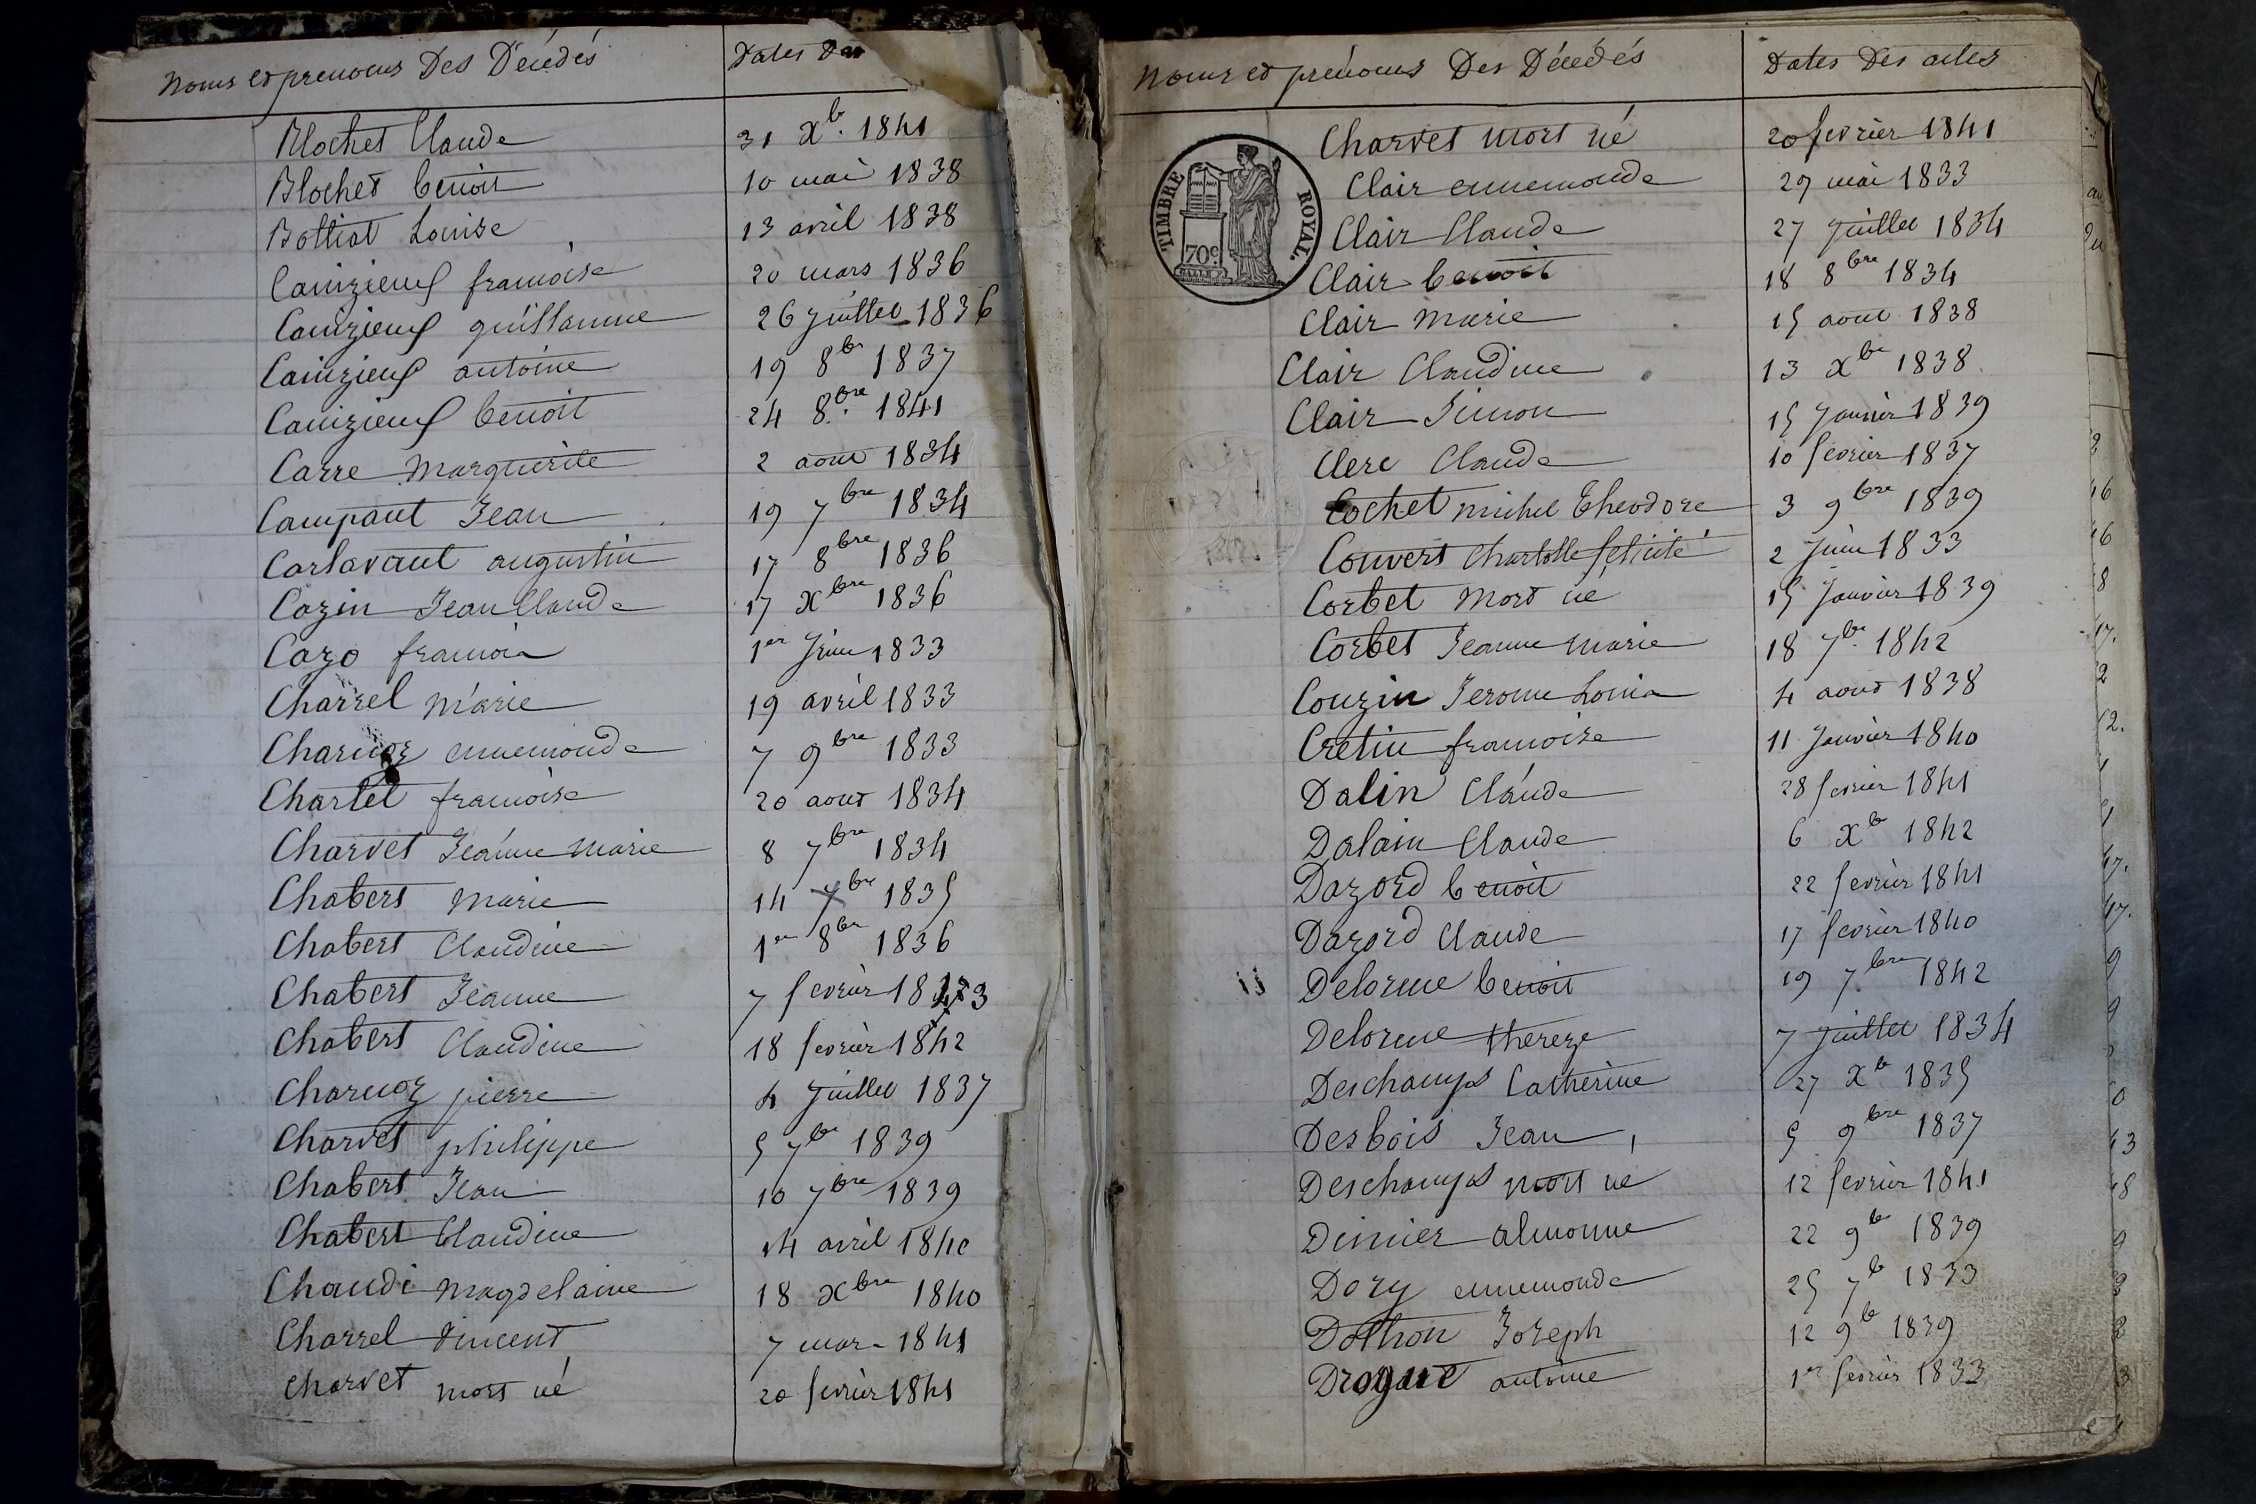 Noms et prenoms Des Décédés Dates Des
Blochet Claude 31 Xb. 1841
Blochet benoit 10 mai 1838
Bottiat Louise 13 avril 1838
Cainzieux francoise 20 mars 1836
Cainzieux guillaume 26 Juillet 1836
Cainzieux antoine 19 8bre 1837
Cainzieux benoit 24 8bre 1841
Carre Marguerite 2 aout 1834
Campant Jean 19 7bre 1834
Carlavant augustin 17 8bre 1836
Cazin Jean Claude 17 Xbre 1836
Cazo francois 1er Juin 1833
Charrel Marie 19 avril 1833
Charnoz ennemonde 7 9bre 1833
Chartel francoise 20 aout 1834
Charvet Jeanne Marie 8 7bre 1834
Chabert Marie 14 7bre 1835
Chabert Claudine 1er 8bre 1836
Chabert Jeanne 7 fevrier 18
Chabert Claudine 18 fevrier 1842
Charnoz pierre 4 Juillet 1837
Charvet philippe 5 7bre 1839
Chabert Jean 10 7bre 1839
Chabert Claudine 14 avril 1840
Chaudi Magdelaine 18 Xbre 1840
Charrel Vincent 7 mars 1841
Charvet mort né 20 fevrier 1841
Noms et prénoms Des Décédés Dates Des actes
TIMBRE ROYAL.
70c.
Charvet mort né 20 fevrier 1841
Clair ennemonde 29 mai 1833
Clair Claude 27 Juillet 1834
Clair benoit 18 8bre 1834
Clair Marie 15 aout 1838
Clair Claudine 13 Xbre 1838
Clair Simon 15 Janvier 1839
Clerc Claude 10 fevrier 1837
Cochet michel Theodore 3 9bre 1839
Couvert Charlotte felicité 2 Juin 1833
Corbet Mort né 15 Janvier 1839
Corbet Jeanne Marie 18 7bre 1842
Couzin Jerome Louis 4 aout 1838
Cretin francoise 11 Janvier 1840
Dalin Claude 28 fevrier 1841
Dalain Claude 6 Xb 1842
Dazord benoit 22 fevrier 1841
Dazord Claude 17 fevrier 1840
Delorme benoit 19 7bre 1842
Delorme thereze 7 Juillet 1834
Deschamps Catherine 27 Xb 1835
Desbois Jean 5 9bre 1837
Deschamps mort né 12 fevrier 1841
Dimier almonne 22 9b 1839
Dory ennemonde 25 7b 1833
Dothon Joseph 12 9b 1839
Drogue antoine 1er fevrier 1833